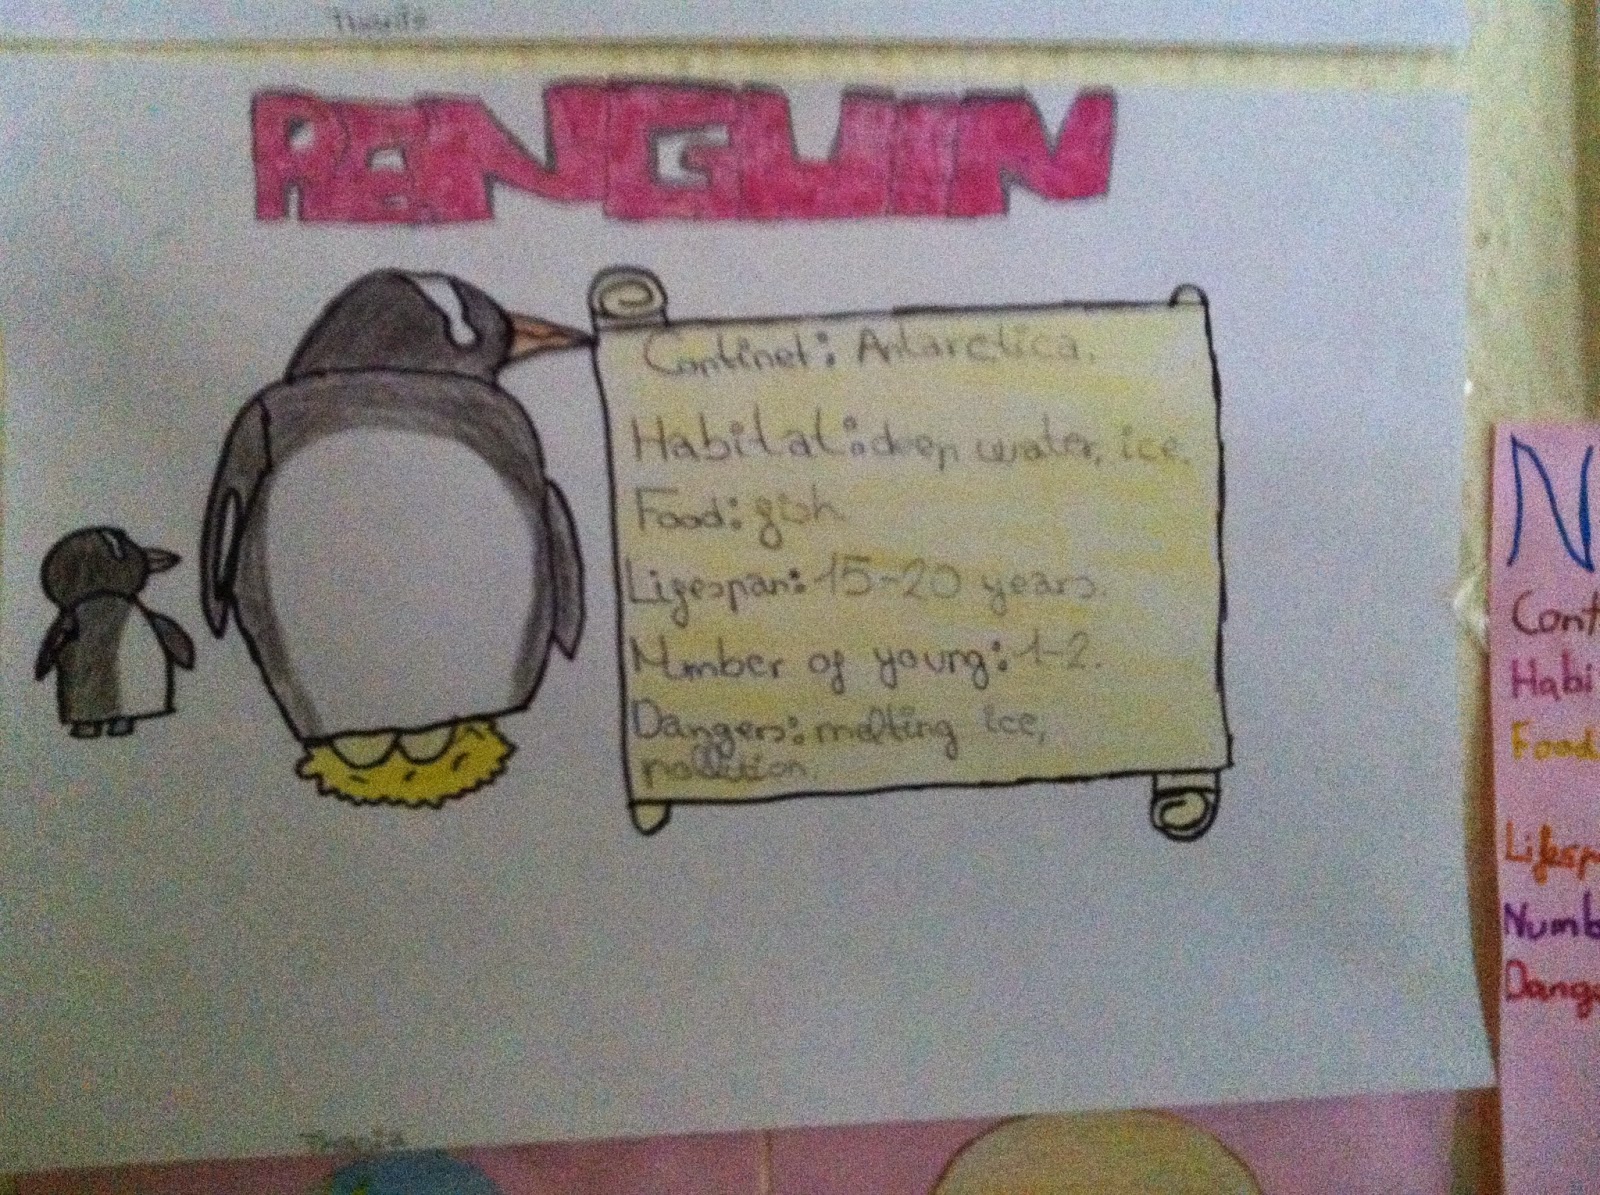 PENGUIN
Continet: Antarctica.
Habitat: deep water, ice.
Food: fish.
Lifespan: 15-20 years.
Number of young: 1-2.
Dangers: melting ice,
pollution.
N
Cont
Habi
Food
Lifesp
Numb
Dange